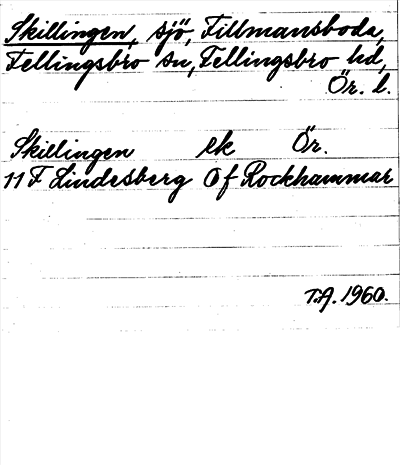 Skillingen, sjö, Fillmansboda,
Fellingsbro sn, Fellingsbro hd,
Ör. l.
Skillingen ek Ör.
11 F Lindesberg 0 f Rockhammar
T.A. 1960.